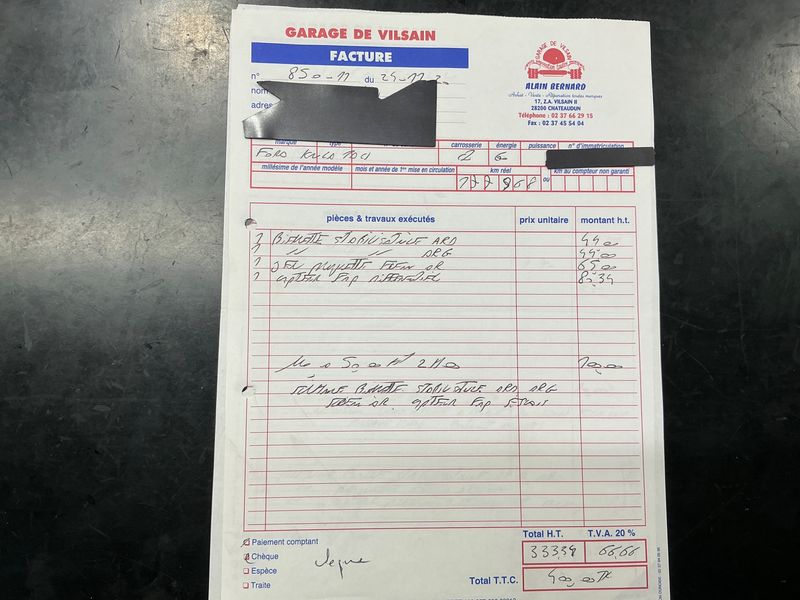 GARAGE DE VILSAIN
FACTURE
GARAGE DE VILSAIN
ALAIN BERNARD
Achat - Vente - Réparation toutes marques
17, Z.A. VILSAIN II
28200 CHATEAUDUN
Téléphone : 02 37 66 29 15
Fax : 02 37 45 54 04
n° 850-11 du
nom
adres
marque type carrosserie énergie puissance n° d'immatriculation
FORD KUGA TDCI
millésime de l'année modèle mois et année de 1ère mise en circulation km réel ou km au compteur non garanti
pièces & travaux exécutés prix unitaire montant h.t.
1 BIELLETTE STABILISATRICE ARD 44,00
1 // // ARG 44,00
1 JEU PLAQUETTE FREIN AR 65,00
1 CAPTEUR FAP DIFFERENTIEL 80,34
MO 50,00 HT 2H00 100,00
BIELLETTE STABILISATRICE ARD ARG
FREIN AR CAPTEUR FAP
Paiement comptant
Chèque
Espèce
Traite
Total H.T. T.V.A. 20 %
333,34 66,66
Total T.T.C. 400,00